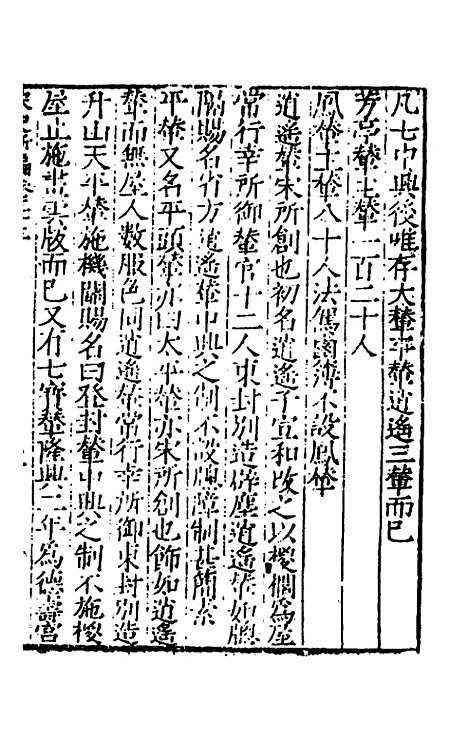 凡七中興後唯存大輦平輦逍遙三輦而已
芳亭輦士輦一百二十人
鳳輦士輦八十人法駕鹵簿不設鳳輦
逍遙輦宋所創也初名逍遙子宣和改之以椶櫚為屋
常行幸所御輦官十二人東封別造辟塵逍遙輦如牌
隔賜名省方逍遙輦中興之制不設牌障制甚簡素
平輦又名平頭輦亦曰太平輦亦宋所創也飾如逍遙
輦而無屋人數服色同逍遙輦常行幸所御東封別造
升山天平輦施機關賜名曰登封輦中興之制不施椶
屋止施畫雲版而已又有七寶輦隆興二年為德壽宮